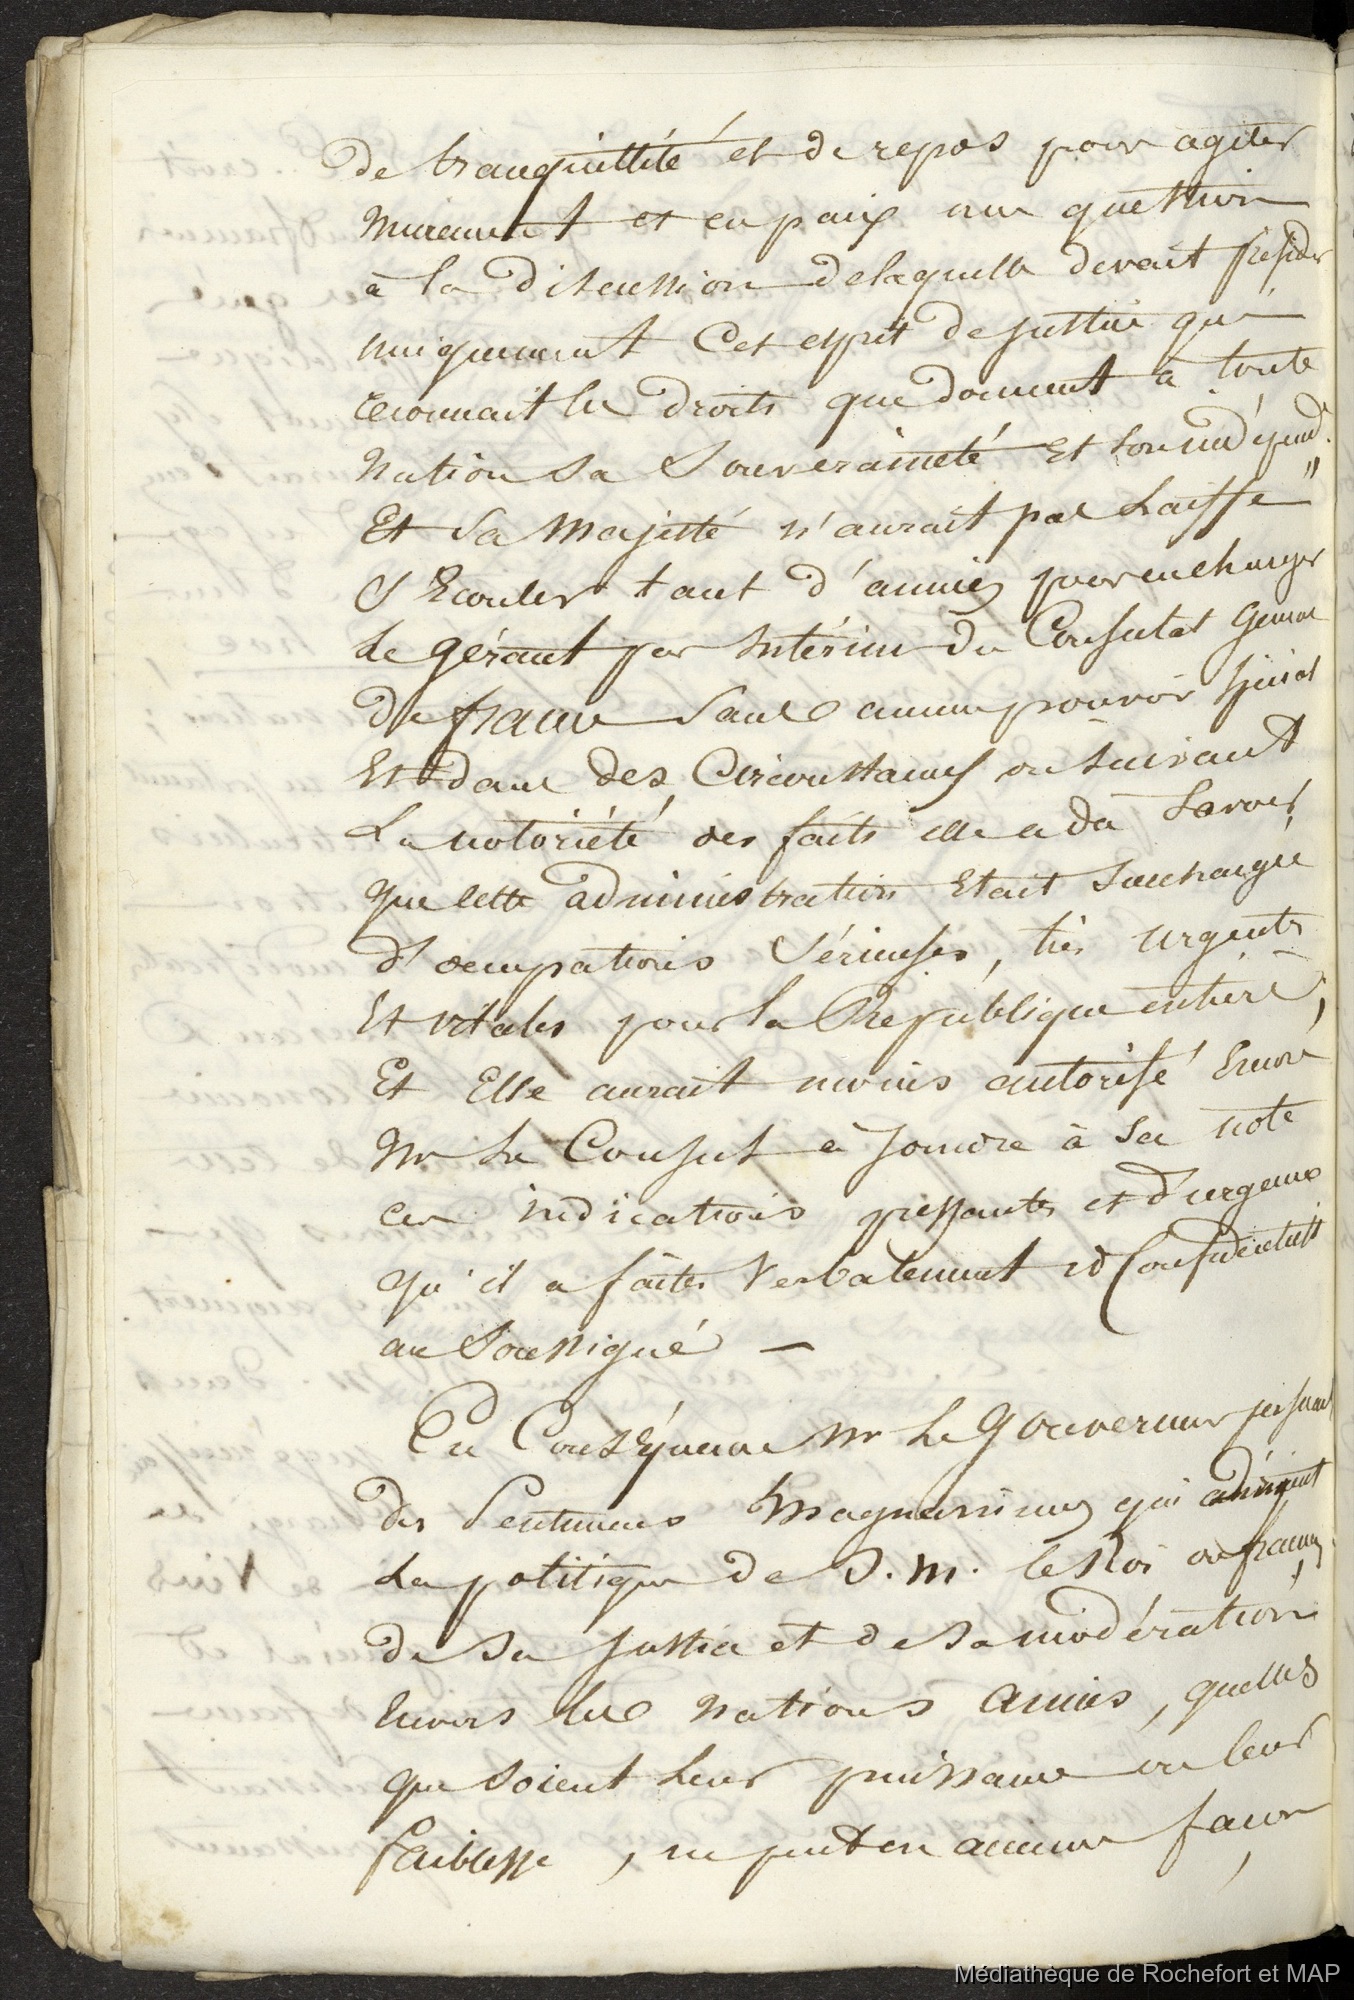 de tranquillité et de repos pour agiter
murement et en paix une question
à la discussion delaquelle devait présider
uniquement cet esprit de justice qui
reconnait les droits que donnent à toute
Nation sa Souveraineté Et son indépend.
Et Sa Majesté n'aurait pas Laissé
S'Ecouler tant d'années pour en charger
Le gérant par Intérim du Consulat Général
De france Sans aucun pouvoir spécial
Et dans des Circonstances ou suivant
La notoriété des faits elle a dû Savoir
que cette administration Etait Surchargée
d'occupations Sérieuses, très urgentes
Et vitales pour la République entière,
Et Elle aurait moins autorisé Encore
Mr Le Consul à Joindre à Sa note
ces indications pressantes et d'urgence
qu'il a faites Verbalement et Confidentiellt
au Soussigné —
En Conséquence Mr Le Gouverneur persuadé
des Sentimens Magnanimes qui animent
La politique de S. M. le Roi des français,
de Sa Justice et de Sa modération
Envers les Nations amies, quelles
que soient Leur puissance ou leur
faiblesse, ne peut en aucune façon,
Médiathèque de Rochefort et MAP